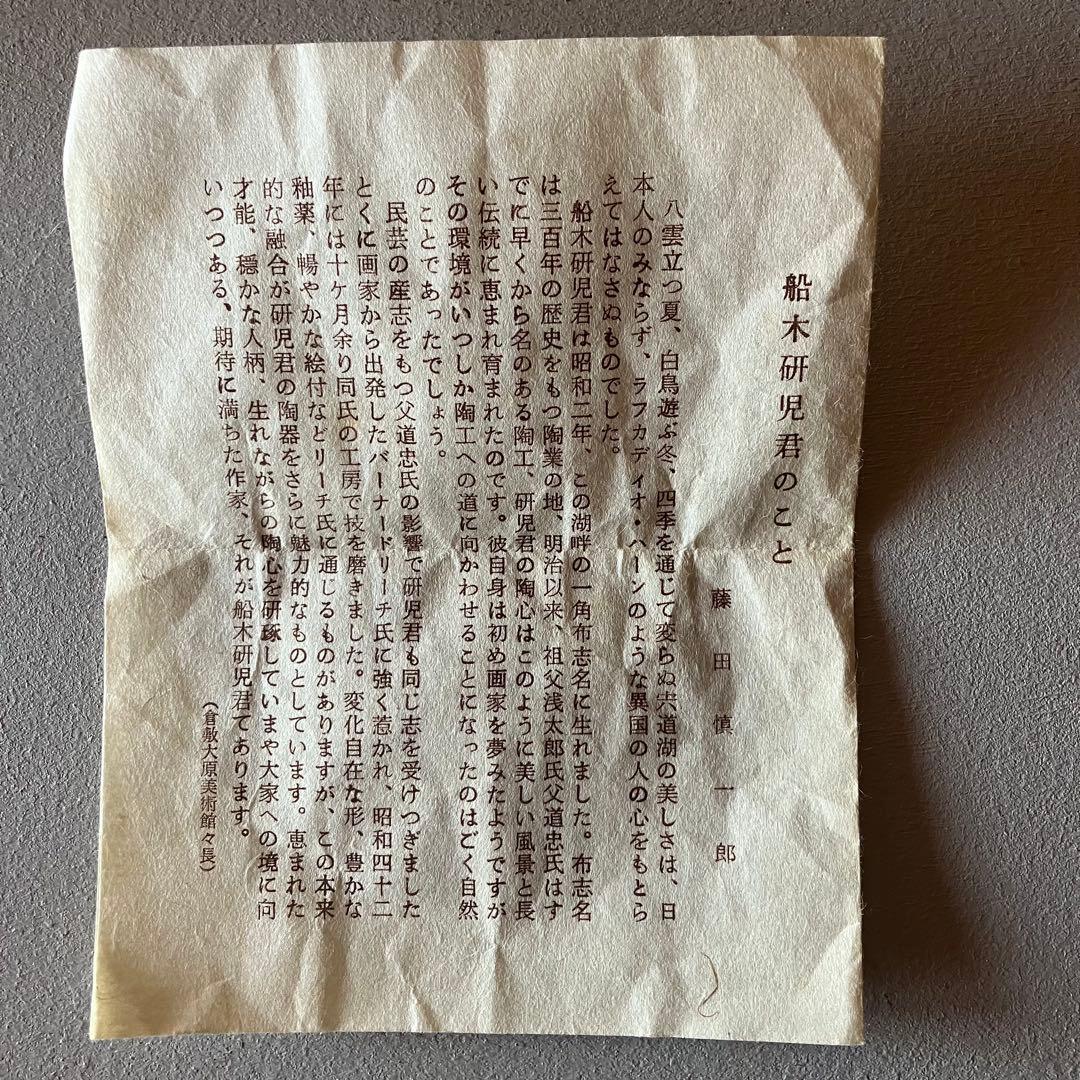 船木研児君のこと
藤田慎一郎
八雲立つ夏、白鳥遊ぶ冬、四季を通じて変らぬ宍道湖の美しさは、日
本人のみならず、ラフカディオ・ハーンのような異国の人の心をもとら
えてはなさぬものでした。
船木研児君は昭和二年、この湖畔の一角布志名に生れました。布志名
は三百年の歴史をもつ陶業の地、明治以来、祖父浅太郎氏父道忠氏はす
でに早くから名のある陶工、研児君の陶心はこのように美しい風景と長
い伝統に恵まれ育まれたのです。彼自身は初め画家を夢みたようですが
その環境がいつしか陶工への道に向かわせることになったのはごく自然
のことであったでしょう。
民芸の産志をもつ父道忠氏の影響で研児君も同じ志を受けつぎました
とくに画家から出発したバーナードリーチ氏に強く惹かれ、昭和四十二
年には十ヶ月余り同氏の工房で技を磨きました。変化自在な形、豊かな
釉薬、暢やかな絵付などリーチ氏に通じるものがありますが、この本来
的な融合が研児君の陶器をさらに魅力的なものとしています。恵まれた
才能、穏かな人柄、生れながらの陶心を研琢していまや大家への境に向
いつつある、期待に満ちた作家、それが船木研児君であります。
（倉敷大原美術館々長）